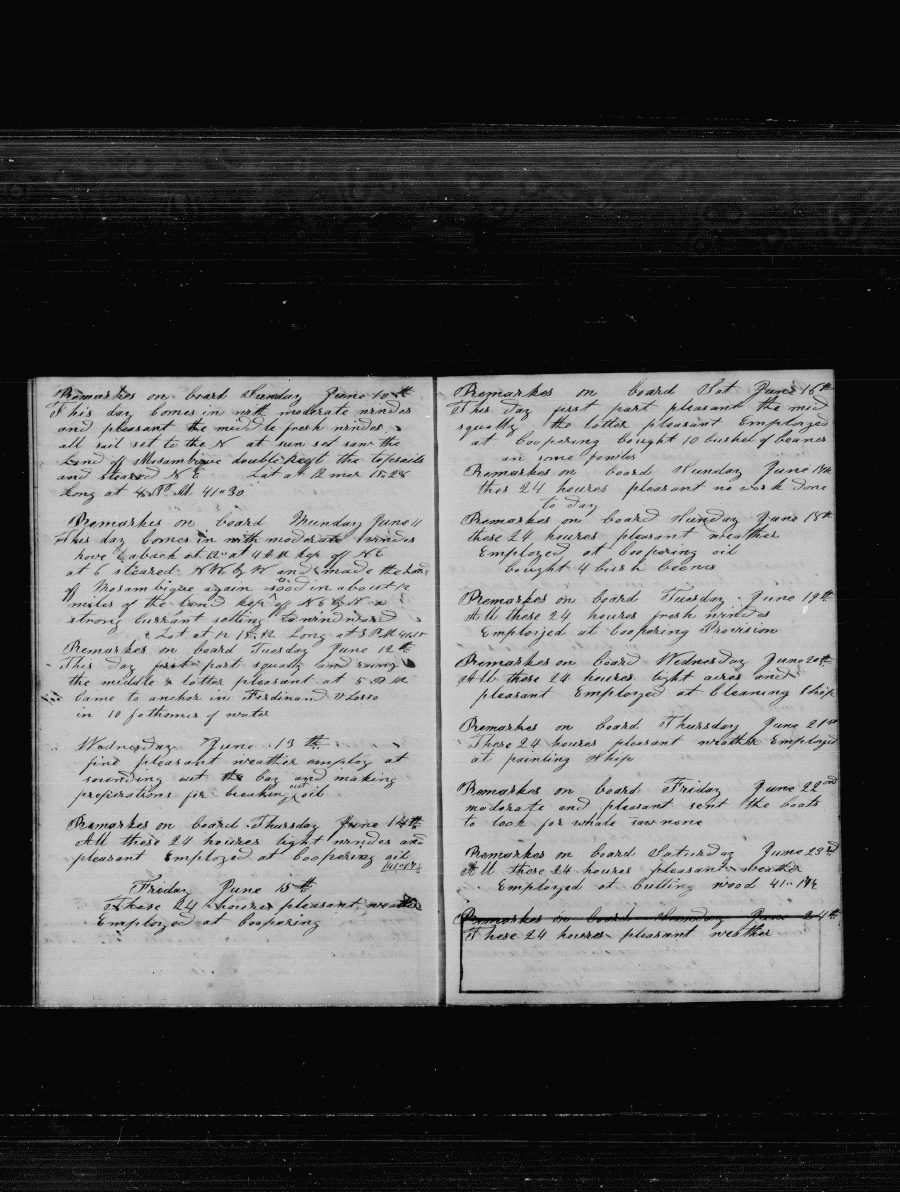 Remarks on board Sunday June 10th
This day Comes in with moderate winds
and pleasant the middle fresh windes
all sail set to the N at sun set saw the
Land of Mosambique double Reeft the topsails
and steared N E Lat at 12 mer 15-28
Long at 4 P M 41-30
Remarkes on board Munday June 11
This day Comes in with moderate windes
hove aback at 12 at 4 A M kep off N E
at 6 steared N W by N and made the Land
of Mosambique again stood in about 12
miles of the land kep off N E by N a
strong currant setting to windward
Lat at 12 15-12 Long at 3 P M
Remarkes on board Tuesday June 12th
This day first part squaly and rainy
the middle & latter pleasant at 5 P M
Came to anchor in Ferdinand Veloso
in 10 fathomes of water
Wednesday June 13th
fine pleasant weather employ at
sounding out the bay and making
preperations for breaking out oil
Remarkes on board Thursday June 14th
All these 24 houres light windes and
pleasant Employed at Coopering oil
Friday June 15th
These 24 houres pleasant weather
Employed at Coopering
Remarkes on board Sat June 16th
This day first part pleasant the mid
squally the latter pleasant Employed
at Coopering bought 10 bushel of beanes
an some fowles
Remarkes on board Sunday June
thes 24 houres pleasant no work done
to day
Remarkes on board Munday June 18th
these 24 houres pleasant weather
Employed at Coopering oil
bought 4 bush beenes
Remarkes on board Tuesday June 19th
All these 24 houres fresh windes
Employed at Coopering Provision
Remarkes on board Wednesday June 20th
All these 24 houres light aires and
pleasant Employed at Cleaning Ship
Remarkes on board Thursday June 21st
These 24 houres pleasant weather Employed
at painting Ship
Remarkes on board Friday June 22nd
moderate and pleasant sent the boats
to look for whale saw none
Remarkes on board Saturday June 23rd
All these 24 houres pleasant weather
Employed at Cutting wood
Remarkes on board Sunday June 24th
These 24 houres pleasant weather